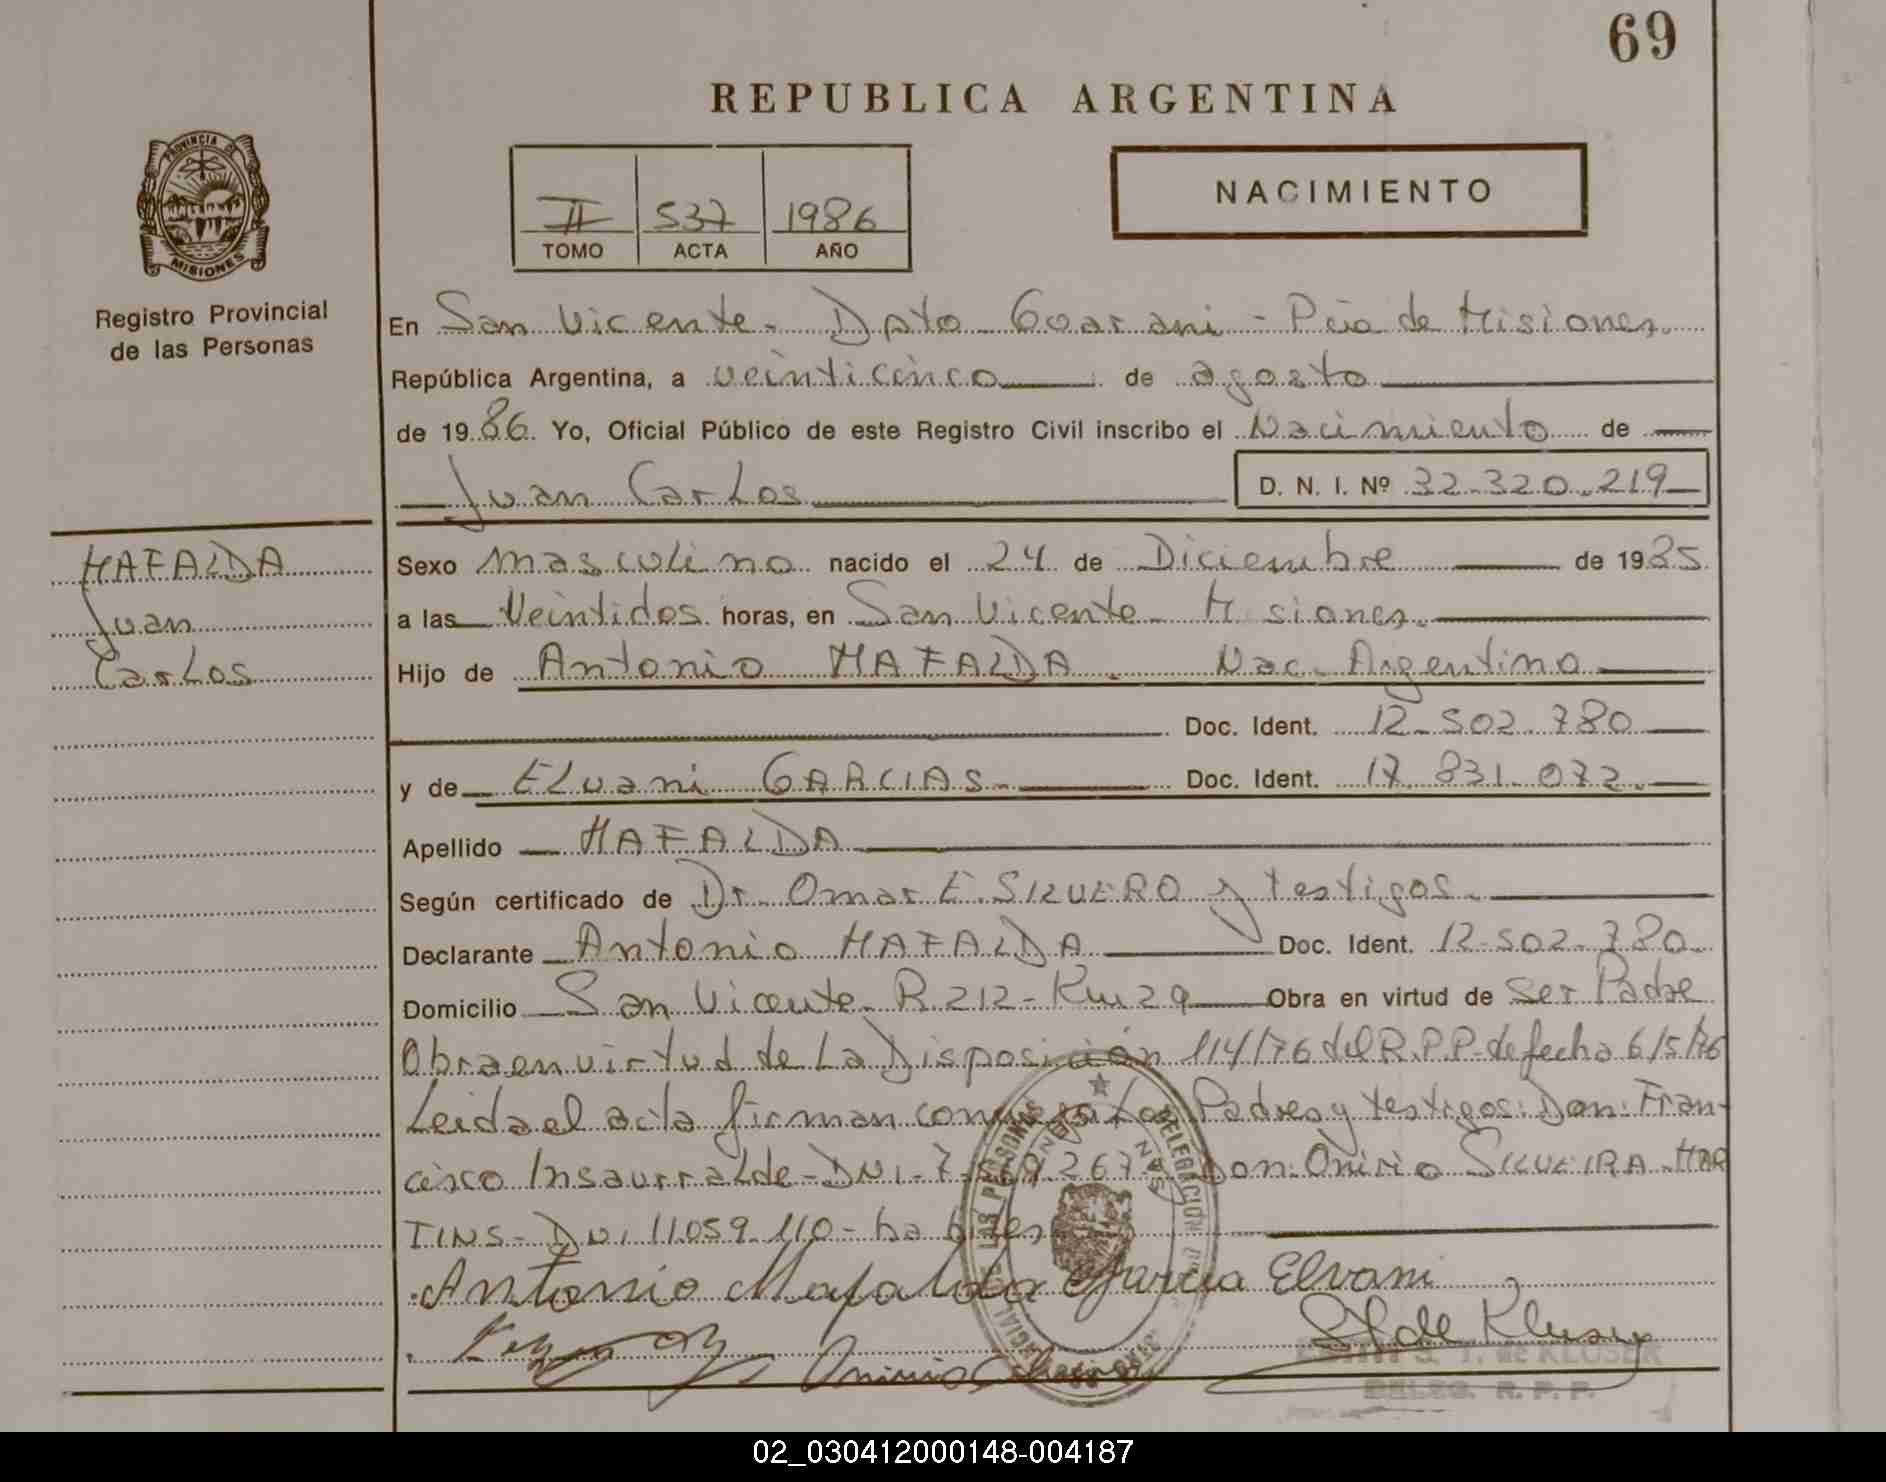 69
REPUBLICA ARGENTINA
PROVINCIA DE
MISIONES
Registro Provincial
de las Personas
II 537 1986
TOMO ACTA AÑO
NACIMIENTO
En San Vicente - Dpto Guarani - Pcia de Misiones.
República Argentina, a veinticinco de agosto
de 1986. Yo, Oficial Público de este Registro Civil inscribo el Nacimiento de
Juan Carlos D. N. I. Nº 32.320.219
MAFALDA
Juan
Carlos
Sexo masculino nacido el 24 de Diciembre de 1985.
a las Veintidos horas, en San Vicente - Misiones.
Hijo de Antonio MAFALDA. Nac. Argentina
Doc. Ident. 12.502.780
y de Elvani GARCIAS. Doc. Ident. 17.831.072.
Apellido MAFALDA
Según certificado de Dr. Omar E. SILVERO y testigos.
Declarante Antonio MAFALDA Doc. Ident. 12.502.780.
Domicilio San Vicente - R. 212 - Km 29 Obra en virtud de ser Padre
Obra en virtud de La Disposición 114/76 del R.P.P. de fecha 6/5/76
Leida el acta firman conmigo Los Padres y testigos: Don: Fran-
cisco Insaurralde - DNI. 267. Don: Onirio SILVEIRA MAR
TINS - DNI 11.059.110 - habiles
Antonio Mafalda Garcia Elvani
S. T. de KLUSER
DELEG. R. P. P.
02_030412000148-004187